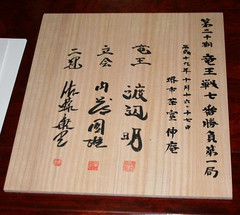 第二十期 竜王戦七番勝負第一局
平成十九年十月十六・十七日
堺市 茶寮 仲庵
竜王 渡辺明
立会 内藤國雄
二冠 佐藤康光